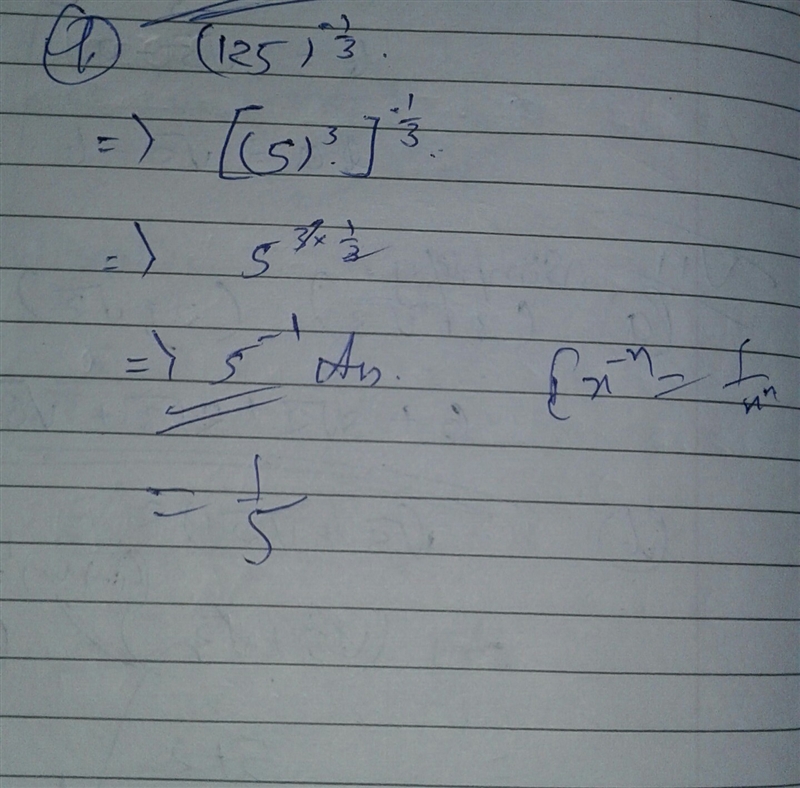 Q (125)^-1/3.
=> [(5)^3]^-1/3.
=> 5^3×1/3
=> 5^-1 An. [x^-n = 1/x^n
= 1/5